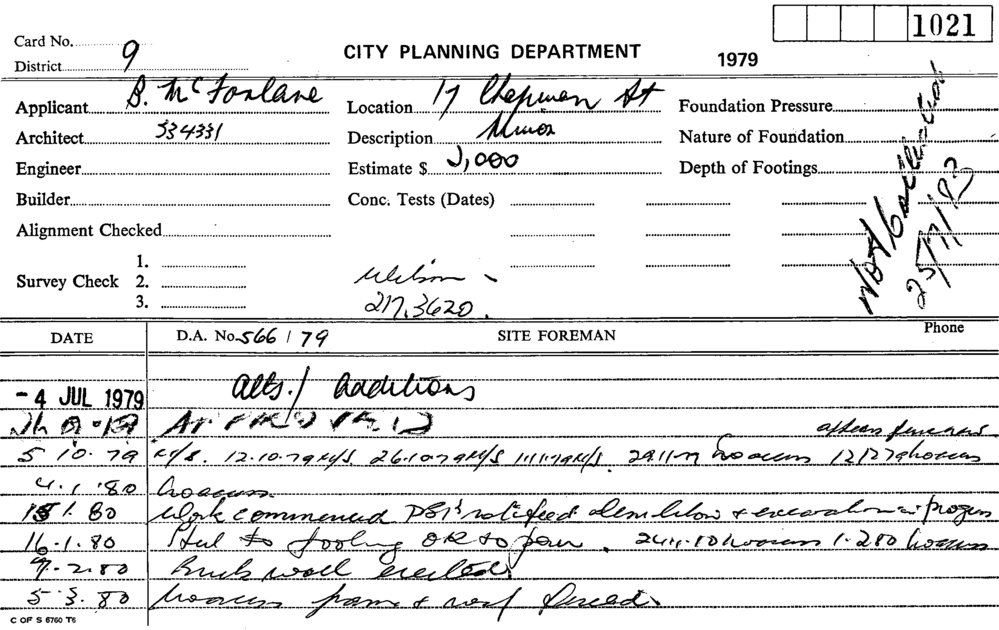 1021
Card No.
District 9
CITY PLANNING DEPARTMENT
1979
Applicant B. McFarlane
Location 17 Chapman St
Foundation Pressure
Architect 334331
Description Minor
Nature of Foundation
Engineer
Estimate $ 2,000
Depth of Footings
Builder
Conc. Tests (Dates)
Alignment Checked
Survey Check
1.
2.
3.
Wilson
217.3620.
Not
25/7/83
DATE
D.A. No. 566 / 79
SITE FOREMAN
Phone
- 4 JUL 1979
Alts./ Additions
5 10.79 W/S. 12.10.79 W/S. 26.10.79 W/S
4.1.80 No access.
15 1.80 Work commenced notified demolition + excavation in progress
16.1.80 Steel to footing OK to pour. no access 1.2.80 no access
7.2.80 Brick wall erected.
5 3.80 No access frame + roof
C OF S 6760 T6